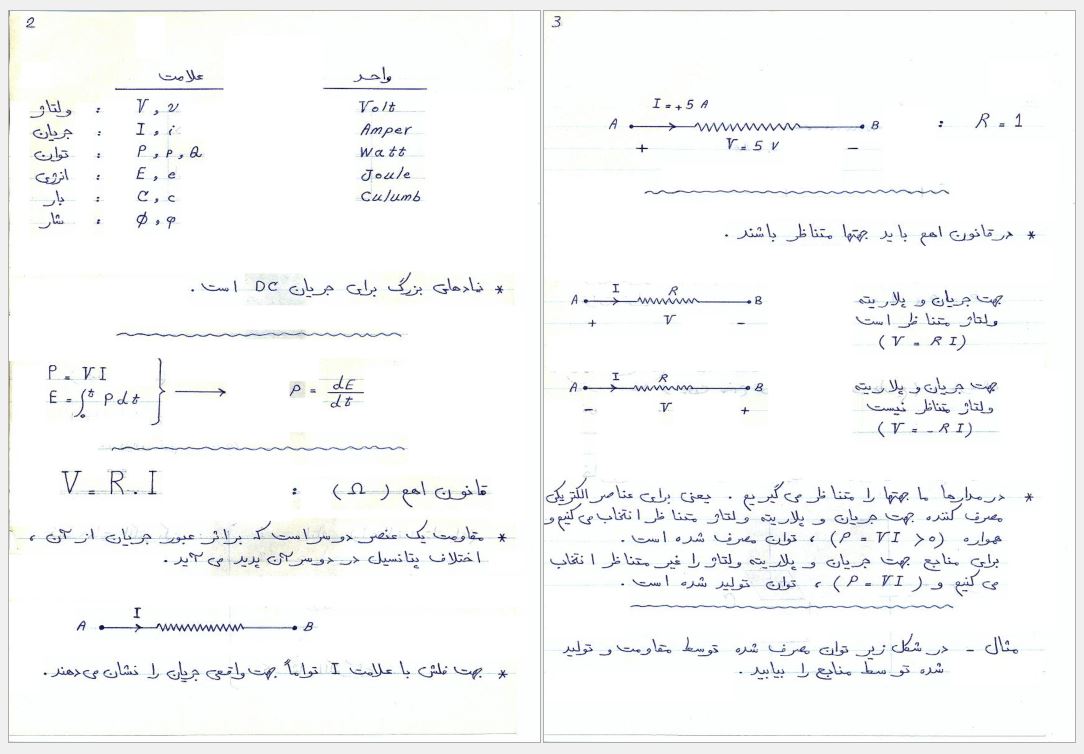 2
علامت واحد
ولتاژ : V , v Volt
جریان : I , i Amper
توان : P , p , Q Watt
انرژی : E , e Joule
بار : C , c Culumb
شار : ϕ , φ
* نمادهای بزرگ برای جریان DC است .
P = VI
E = ∫₀ᵗ P dt } ⟶ P = dE/dt
قانون اهم ( Ω ) : V = R . I
* مقاومت یک عنصر دو سر است که بر اثر عبور جریان از آن ،
اختلاف پتانسیل در دو سر آن پدید می آید .
A I B
* جهت فلش با علامت I تواماً جهت واقعی جریان را نشان می دهند .
3
I = +5 A
A B : R = 1
+ V = 5 V -
* در قانون اهم باید جهتها متناظر باشند .
A I R B جهت جریان و پلاریته
+ V - ولتاژ متناظر است
( V = R I )
A I R B جهت جریان و پلاریته
- V + ولتاژ متناظر نیست
( V = - R I )
* در مدارها ما جهتها را متناظر می گیریم . یعنی برای عناصر الکتریکی
مصرف کننده جهت جریان و پلاریته ولتاژ متناظر انتخاب می کنیم و
همواره ( P = VI > 0 ) ، توان مصرف شده است .
برای منابع جهت جریان و پلاریته ولتاژ را غیر متناظر انتخاب
می کنیم و ( P = VI ) ، توان تولید شده است .
مثال - در شکل زیر توان مصرف شده توسط مقاومت و تولید
شده توسط منابع را بیابید .